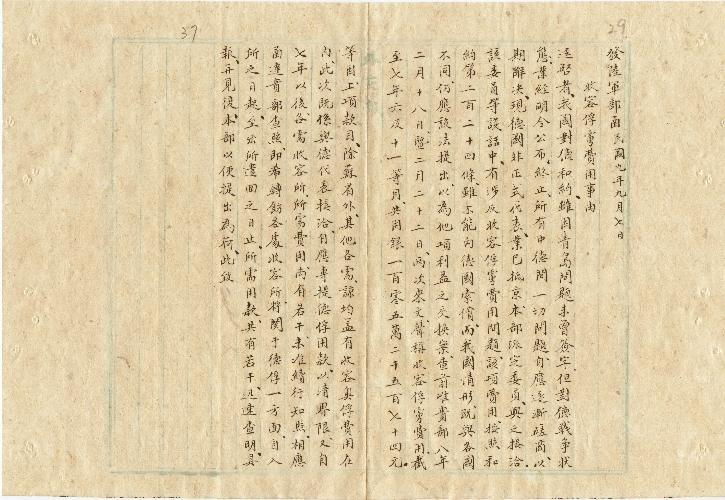 29
37
發陸軍部函民國九年九月七日
收容俘虜費用事由
逕啓者我國對德和約雖因青島問題未曾簽字但對德戰爭狀
態業經明令公布終止所有中德間一切問題自應逐漸磋商以
期解决現德國非正式代表業已抵京本部派定委員與之接洽
該委員等談話中有涉及收容俘虜費用問題該項費用按照和
約第二百二十四條雖不能向德國索償而我國情形既與各國
不同仍應設法提出以為他項利益之交換案查前准貴部八年
二月十八日暨二月二十二日兩次來文聲稱收容俘虜費用截
至七年六及十一等月共用銀一百零五萬二千五百七十四元
等因上項款目除蘇省外其他各處諒均並有收容奧俘費用在
內此次既係與德代表接洽自應專提德俘用款以清界限又自
七年以後各處收容所所需費用尚有若干未准續行知照相應
函達貴部查照即希轉飭各處收容所將關于德俘一方面自入
所之日起至出所遣回之日止所需用款共有若干迅速查明具
報并見復本部以便提出為荷此致